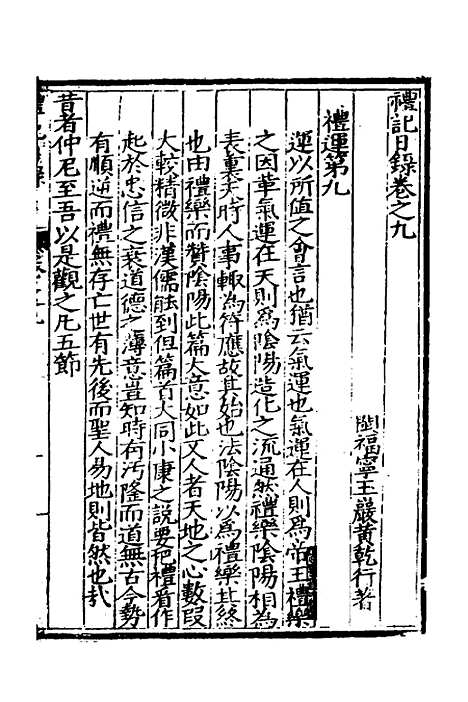 禮記日錄卷之九
閩福寧玉巖黃乾行著
禮運第九
運以所值之會言也猶云氣運也氣運在人則為帝王禮樂
之因革氣運在天則為陰陽造化之流通然禮樂陰陽相為
表裏天時人事輙為符應故其始也法陰陽以為禮樂其終
也由禮樂而贊陰陽此篇大意如此又人者天地之心數叚
大較精微非漢儒能到但篇首大同小康之說要把禮看作
起於忠信之衰道德之薄意豈知時有汚隆而道無古今勢
有順逆而禮無存亡世有先後而聖人易地則皆然也㢤
昔者仲尼至吾以是觀之凡五節